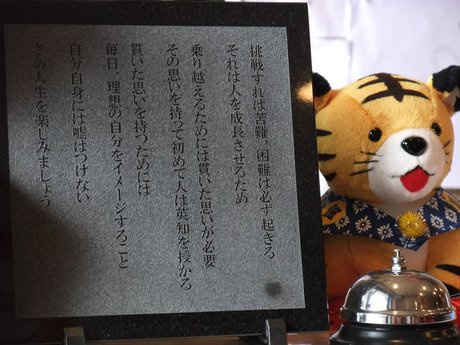 挑戦すれば苦難、困難は必ず起きる
それは人を成長させるため
乗り越えるためには貫いた思いが必要
その思いを持つて初めて人は英知を授かる
貫いた思いを持つためには
毎日、理想の自分をイメージすること
自分自身には嘘はつけない
さあ人生を楽しみましょう